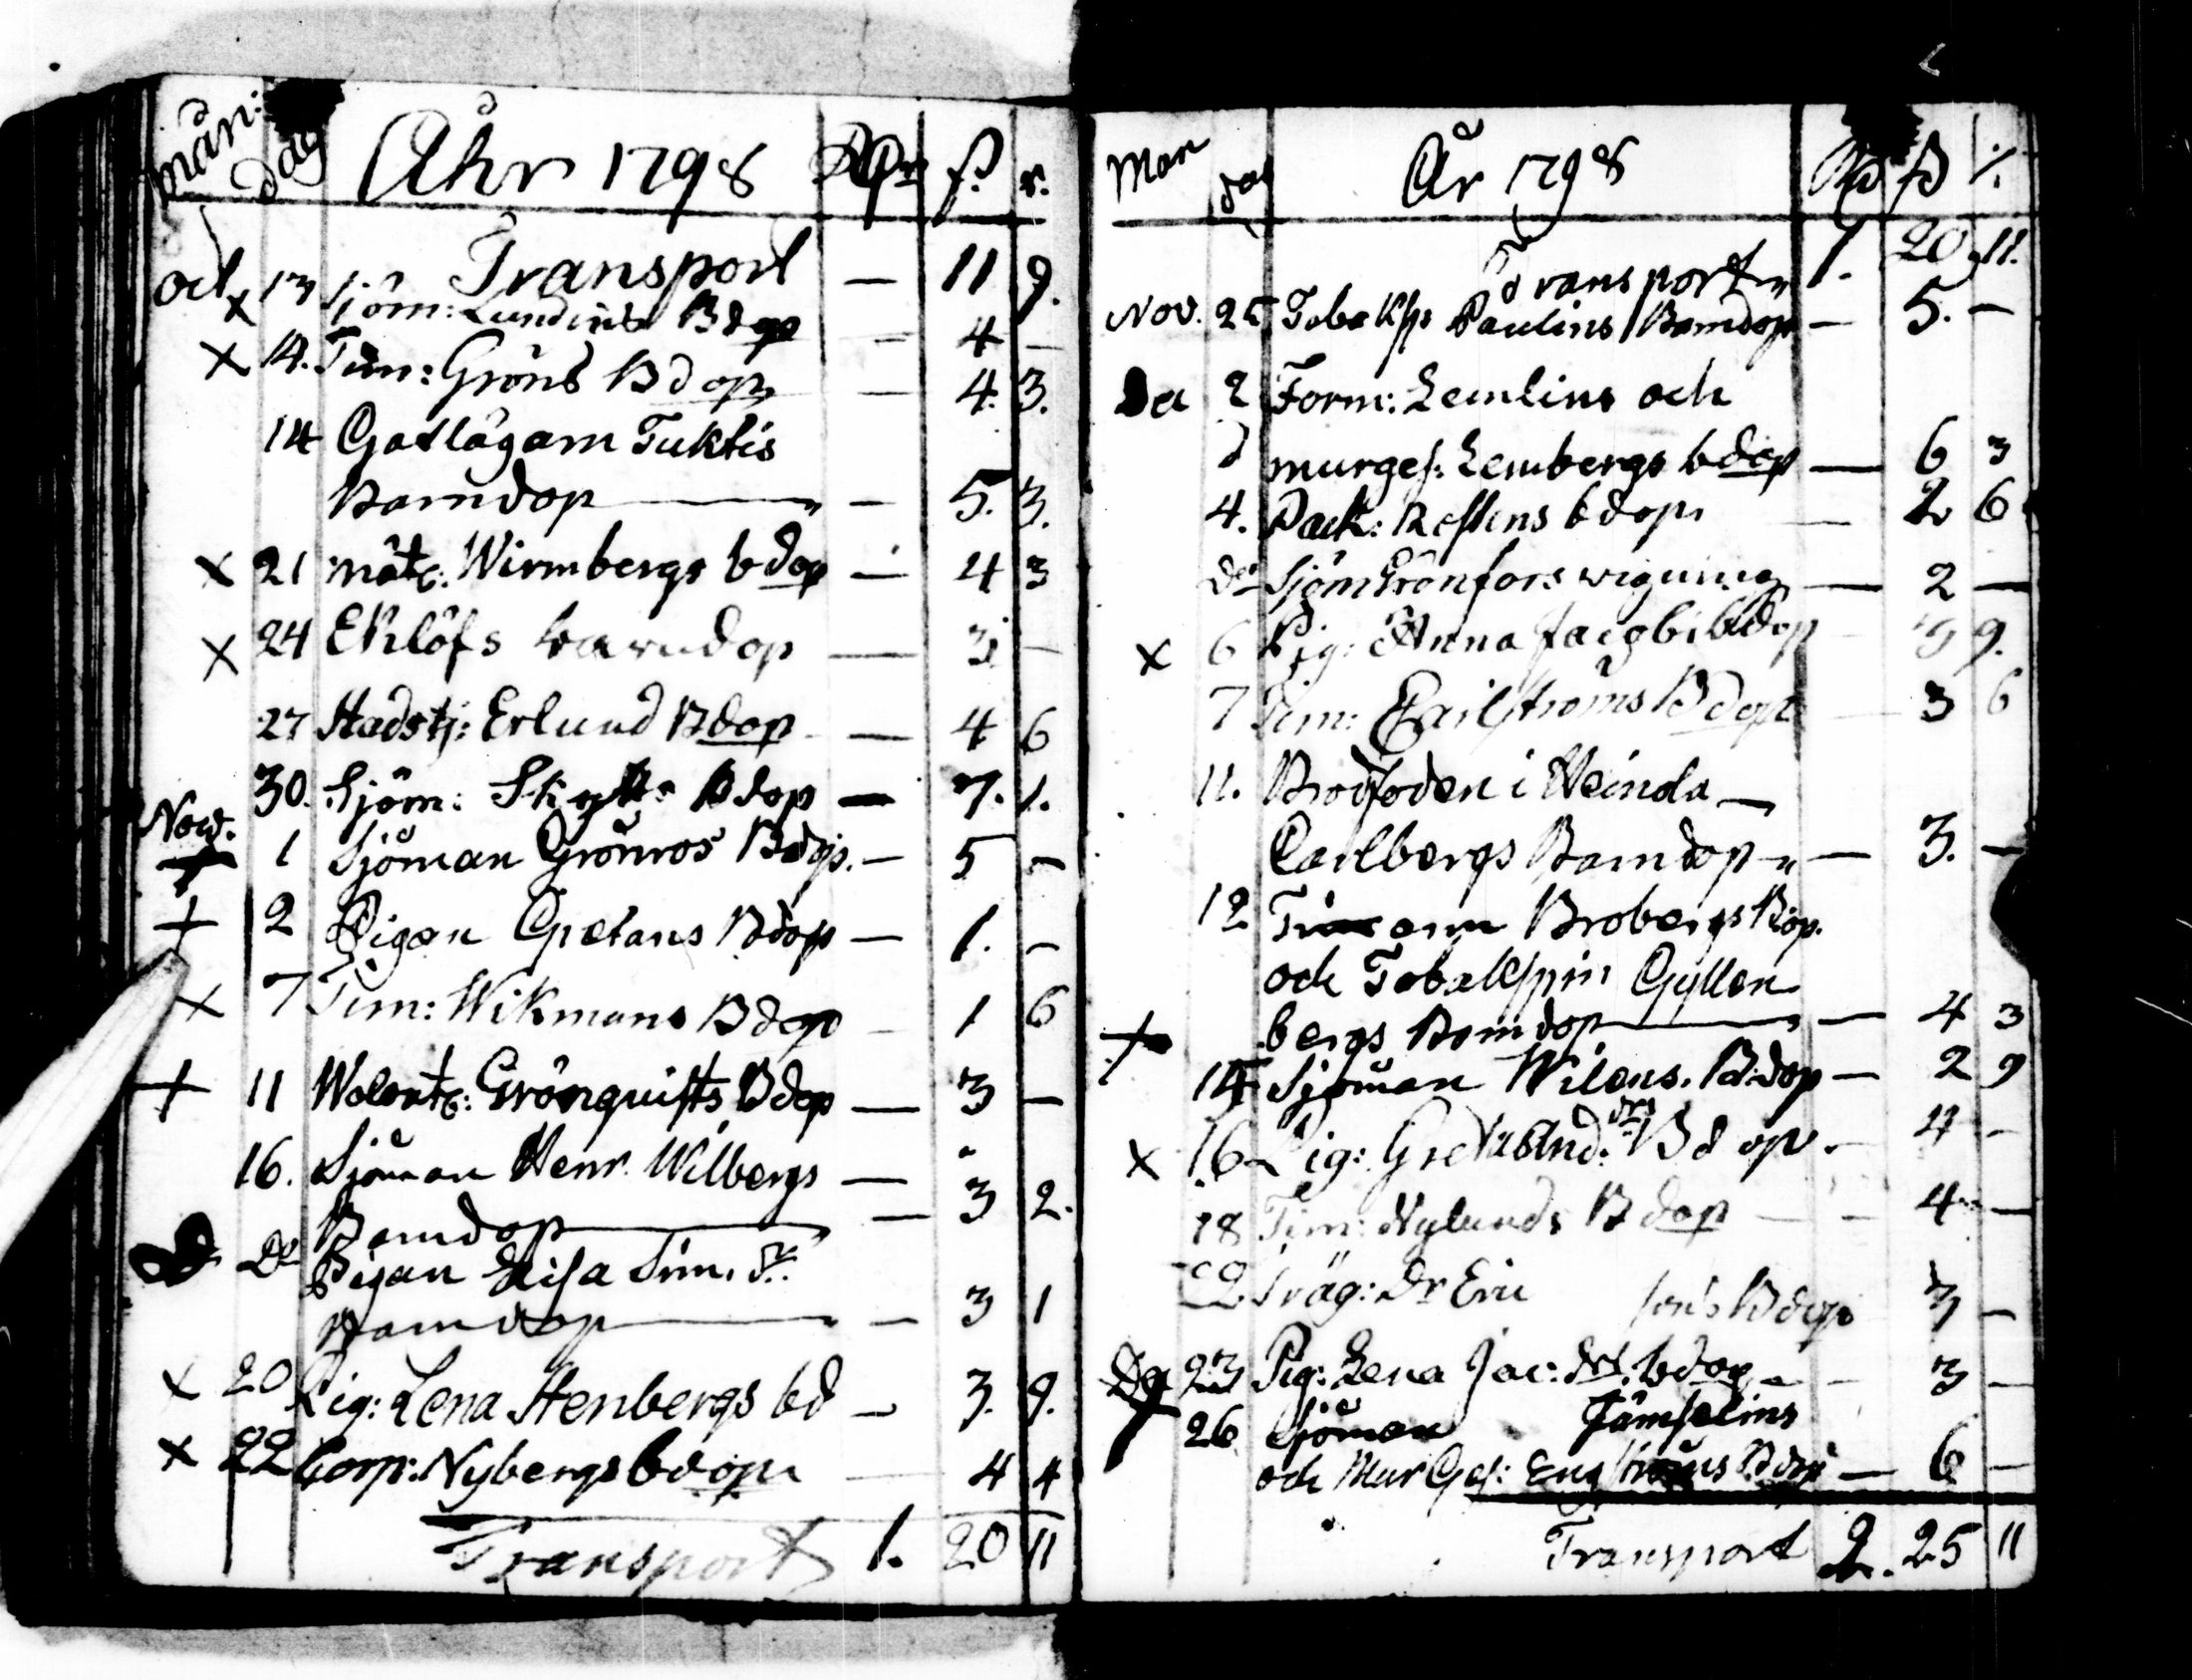 mån: dag Åhr 1798 Rdr ß. r.
Transport — 11 9.
oct x 13 Sjöm: Lundins Bdop — 4 —
x 14. Tim: Gröns Bdop — 4. 3.
14 Gatlägarn Tuktis
Barndop — 5. 3.
x 21 Wirmbergs bdop — 4 3
x 24 Eklöfs barndop — 3 —
27 Stadstj: Erlund Bdop — 4 6
30. Sjöm: Bdop — 7. 1.
Nov.
+ 1 Sjöman Grönros Bdop. — 5 —
+ 2 Pigan Gretans Bdop — 1. —
x 7 Tim: Wikmans Bdop — 1 6
+ 11 Grönquists Bdop — 3 —
16. Sjöman Henr. Wilbergs —
Barndop — 3 2.
Do Pigan Lisa Sim. dr.
Barndop — 3 1
x 20 Pig: Lena Stenbergs bd — 3. 9.
x 22 Corp: Nybergs bdop — 4 4
Transport 1. 20 11
Mon dag År 1798 Rd ß r.
Transport 1. 20 11.
Nov. 25 Tobaksp: Paulins Barndop — 5. —
De 2 Form: Lemlins och
d murges: Lembergs bdop — 6 3
4. Pack: bdop — 2 6
do Sjöm Grönfors wigning — 2 —
x 6 Pig: Anna Jacobi bdop 9.
7 Tim: Carlströms Bdop — 3 6
11. i Heinola —
Carlbergs Barndop — 3. —
12 Brobergs Bdop.
och Tobakspin Gyllen
+ bergs Barndop — 4 3
14 Sjöman Wilens. Bdop — 2 9
x 16 Pig: Greta And: drs Bdop. — 4 —
18 Tim: Nylunds Bdop — 4 —
22 Träg: Dr Eric sons Bdop 3 —
23 Pig: Lena Jac: drs. bdop — 3 —
26 Sjöman Jämselins
och Mur Ges: Engströms Bdop — 6 —
Transport 2. 25 11